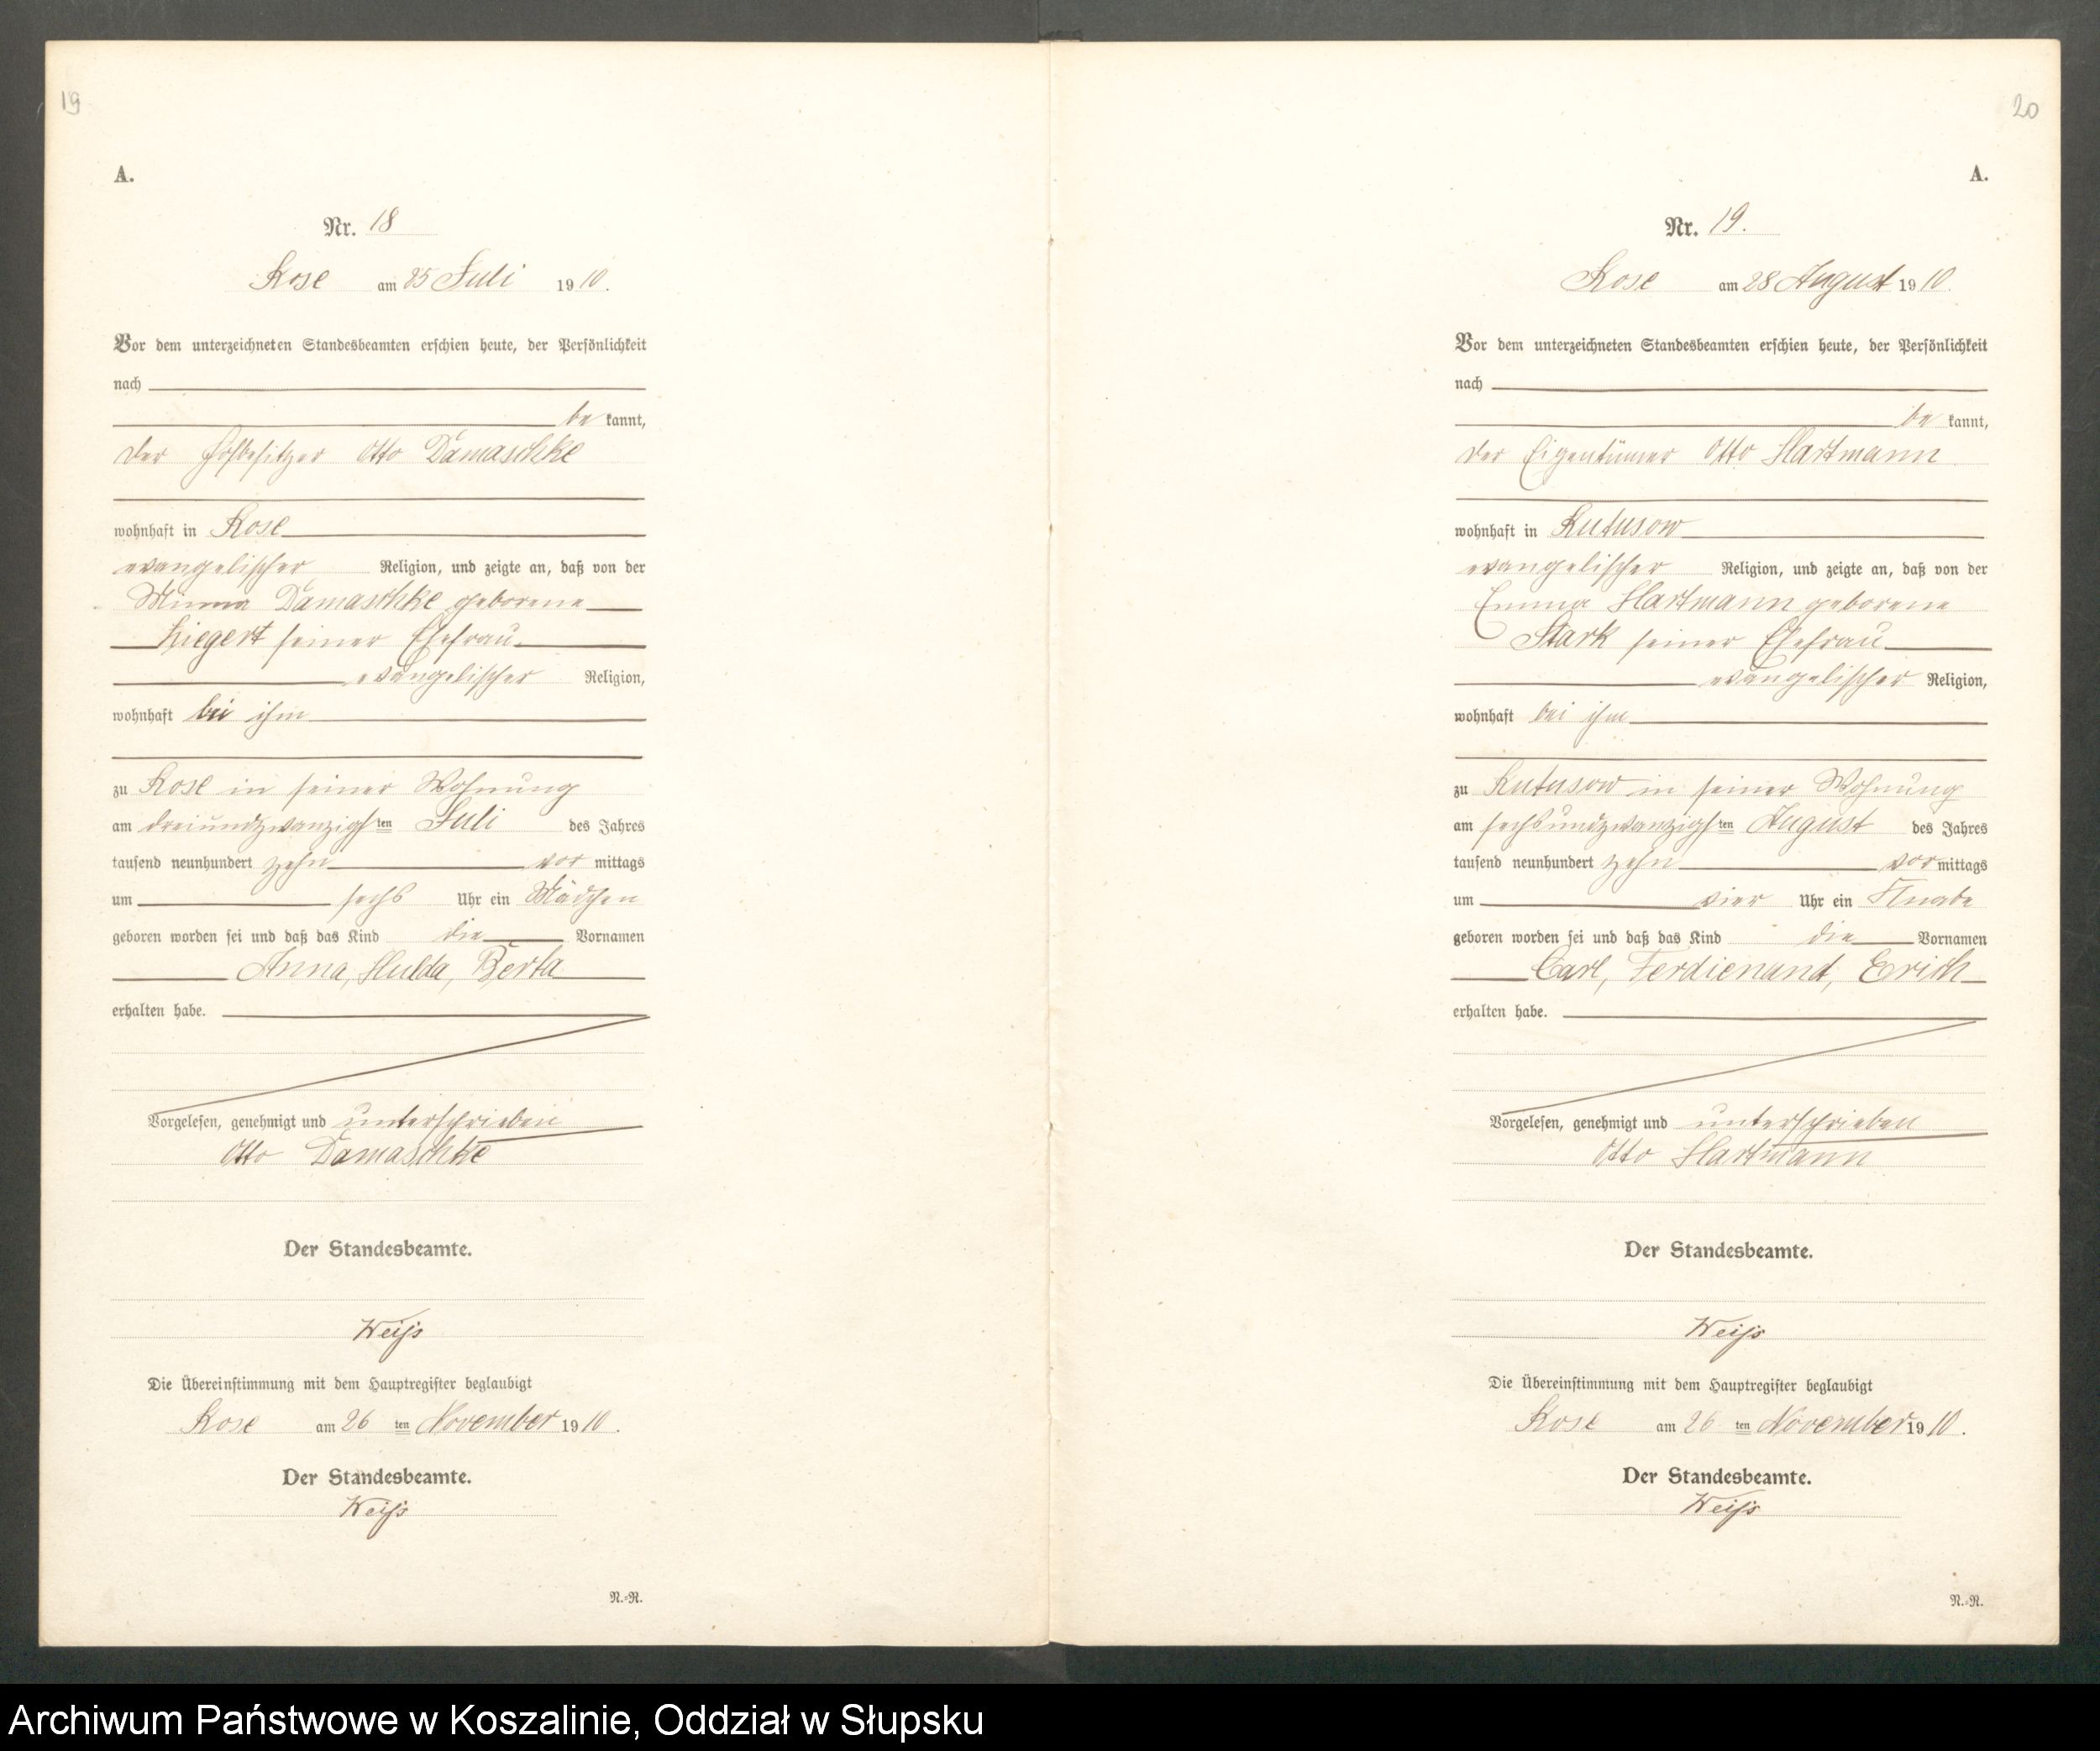 19
A.
Nr. 18
Rose am 25 Juli 1910.
Vor dem unterzeichneten Standesbeamten erschien heute, der Persönlichkeit
nach
be kannt,
der Hofbesitzer Otto Damaschke
wohnhaft in Rose
evangelischer Religion, und zeigte an, daß von der
Minna Damaschke geborene
Kiegert seiner Ehefrau
evangelischer Religion,
wohnhaft bei ihm
zu Rose in seiner Wohnung
am dreiundzwanzigsten Juli des Jahres
tausend neunhundert zehn vor mittags
um sechs Uhr ein Mädchen
geboren worden sei und daß das Kind die Vornamen
Anna, Hulda, Berta
erhalten habe.
Vorgelesen, genehmigt und unterschrieben
Otto Damaschke
Der Standesbeamte.
Weiß
Die Übereinstimmung mit dem Hauptregister beglaubigt
Rose am 26 ten November 1910.
Der Standesbeamte.
Weiß
N.-R.
20
A.
Nr. 19.
Rose am 28 August 1910.
Vor dem unterzeichneten Standesbeamten erschien heute, der Persönlichkeit
nach
be kannt,
der Eigentümer Otto Hartmann
wohnhaft in Kutusow
evangelischer Religion, und zeigte an, daß von der
Emma Hartmann geborene
Stark seiner Ehefrau
evangelischer Religion,
wohnhaft bei ihm
zu Kutusow in seiner Wohnung
am sechsundzwanzigsten August des Jahres
tausend neunhundert zehn vor mittags
um vier Uhr ein Knabe
geboren worden sei und daß das Kind die Vornamen
Carl, Ferdienand, Erich
erhalten habe.
Vorgelesen, genehmigt und unterschrieben
Otto Hartmann
Der Standesbeamte.
Weiß
Die Übereinstimmung mit dem Hauptregister beglaubigt
Rose am 26 ten November 1910.
Der Standesbeamte.
Weiß
N.-R.
Archiwum Państwowe w Koszalinie, Oddział w Słupsku